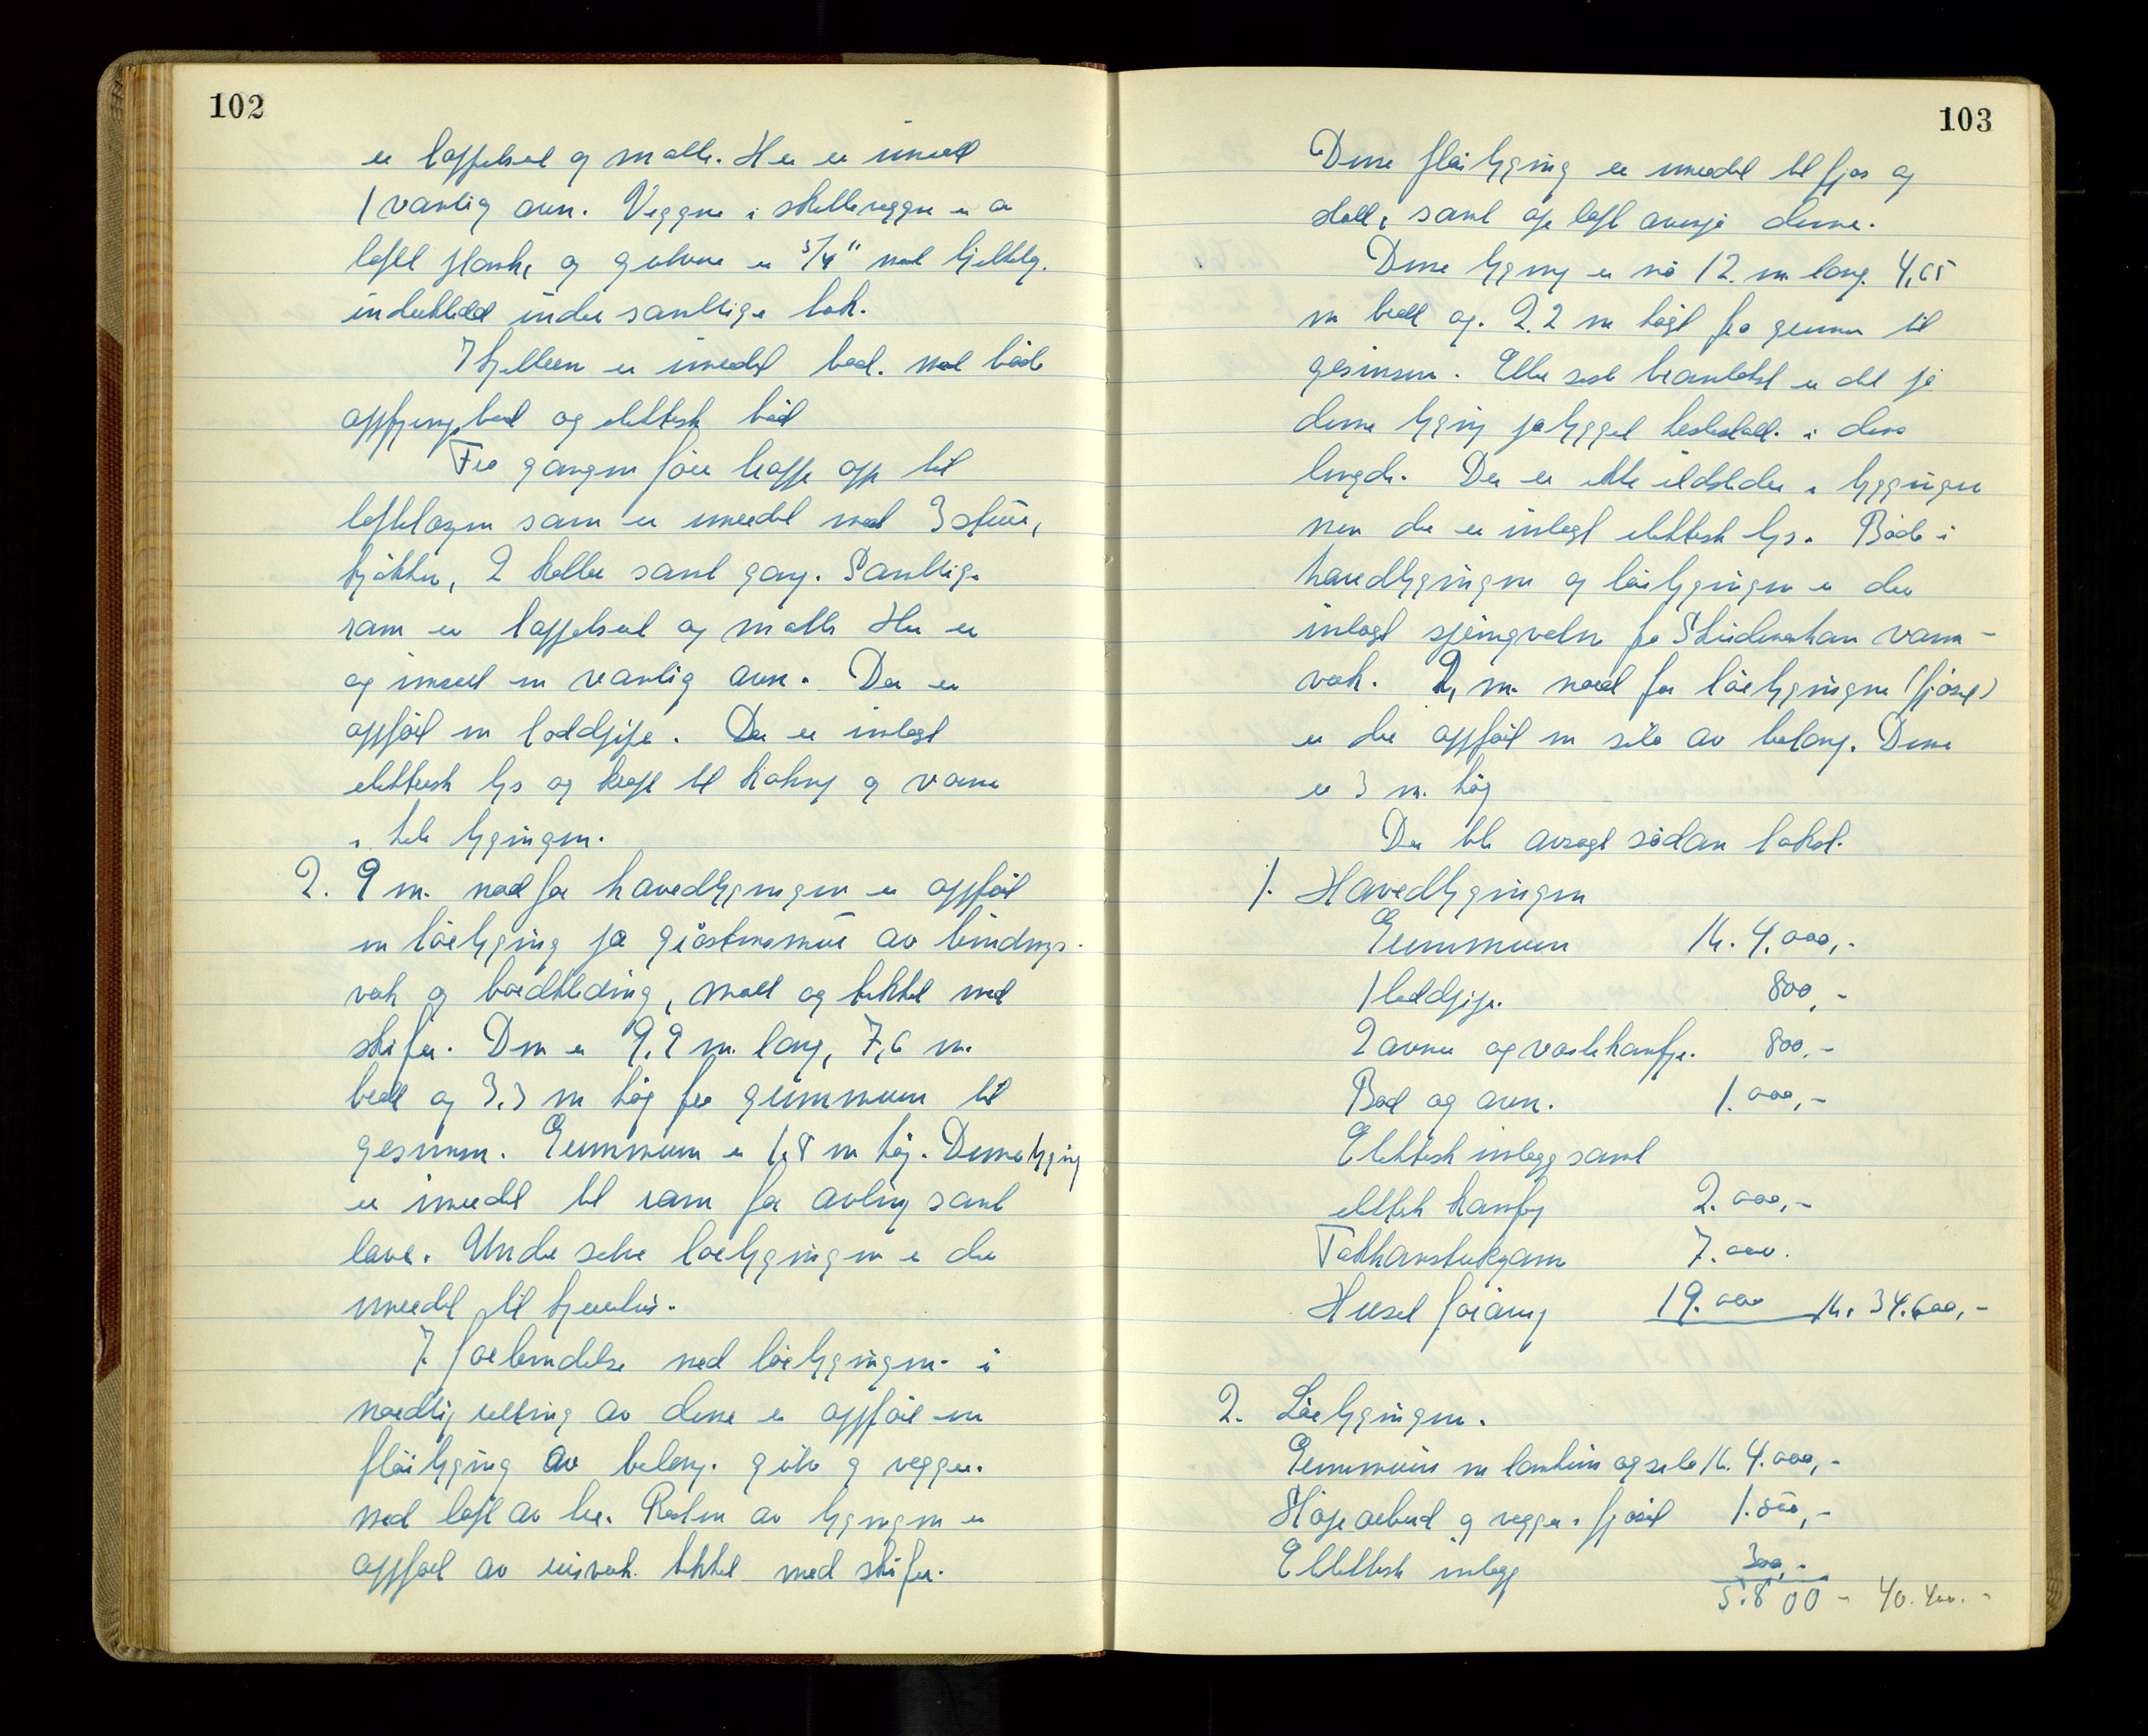 102
er tappetsert og malt. Her er innsatt
1 vanlig ovn. Veggene i skillevegger er av
løftet plank, og golvene er 5/4" med kjeller
innbekledd under samtlige tak.
I kjelleren er innredet bad. med både
oppfyringbad og elektrisk bad
Fra gangen fører trapp opp til
loftetasjen som er innredet med 3 stuer,
kjøkken, 2 koller samt gang. Samtlige
rom er tappetsert og malt. Her er
og innsatt en vanlig ovn. Der er
oppført en loddpipe. Der er innlagt
elektrisk lys og kraft til koking og varme
i hele bygningen.
2. 9 m. nord for hovedbygningen er oppført
en løebygning på gråstensmur av bindings-
verk og bordkledning, malt og tekket med
skifer. Den er 9,9 m. lang, 7,6 m.
bred og 3,3 m høg fra grunnmuren til
gesimsen. Grunnmuren er 1,8 m høg. Denne bygning
er innredet til rom for avling samt
løve. Under selve løebygningen er der
innredet til kjerrehus.
I forbindelse med løebygningen i
nordlig retning av denne er oppført en
fløibygning av betong. golv og vegger.
med loft av tre. Resten av bygningen er
oppført av reisverk tekket med skifer.
103
Denne fløibygning er innredet til fjøs og
stall, samt opp loft ovenpå denne.
Denne bygning er nå 12. m lang. 4,65
m bred og. 2.2 m høgt fra grunnen til
gesimsen. Etter siste branntakst er det på
denne bygning påbygget hestestall i dens
lengde. Der er ikke ildsteder i bygningen
men der er innlagt elektrisk lys. Både i
hovedbygningen og løebygningen er der
innlagt springvatn fra Skudeneshavn vann-
verk. 2, m. nord for løebygningen (fjøset)
er der oppført en silo av betong. Denne
er 3 m. høg
Der ble avsagt sådan takst.
1. Hovedbygningen
Grunnmuren Kr. 4.000,-
1 loddpipe. 800,-
2 ovner og vaskekomfyr. 800,-
Bad og ovn. 1.000,-
Elektrisk innlegg samt
elektrisk komfyr 2.000,-
Takkonstruksjonen 7.000.
Huset forøvrig 19.000 Kr. 34.600,-
2. Løebygningen.
Grunnmuren m landkum og silo Kr. 4.000,-
Støpearbeid og vegger i fjøset 1.500,-
Elektrisk innlegg 300,-
5.800 - 40.400.-